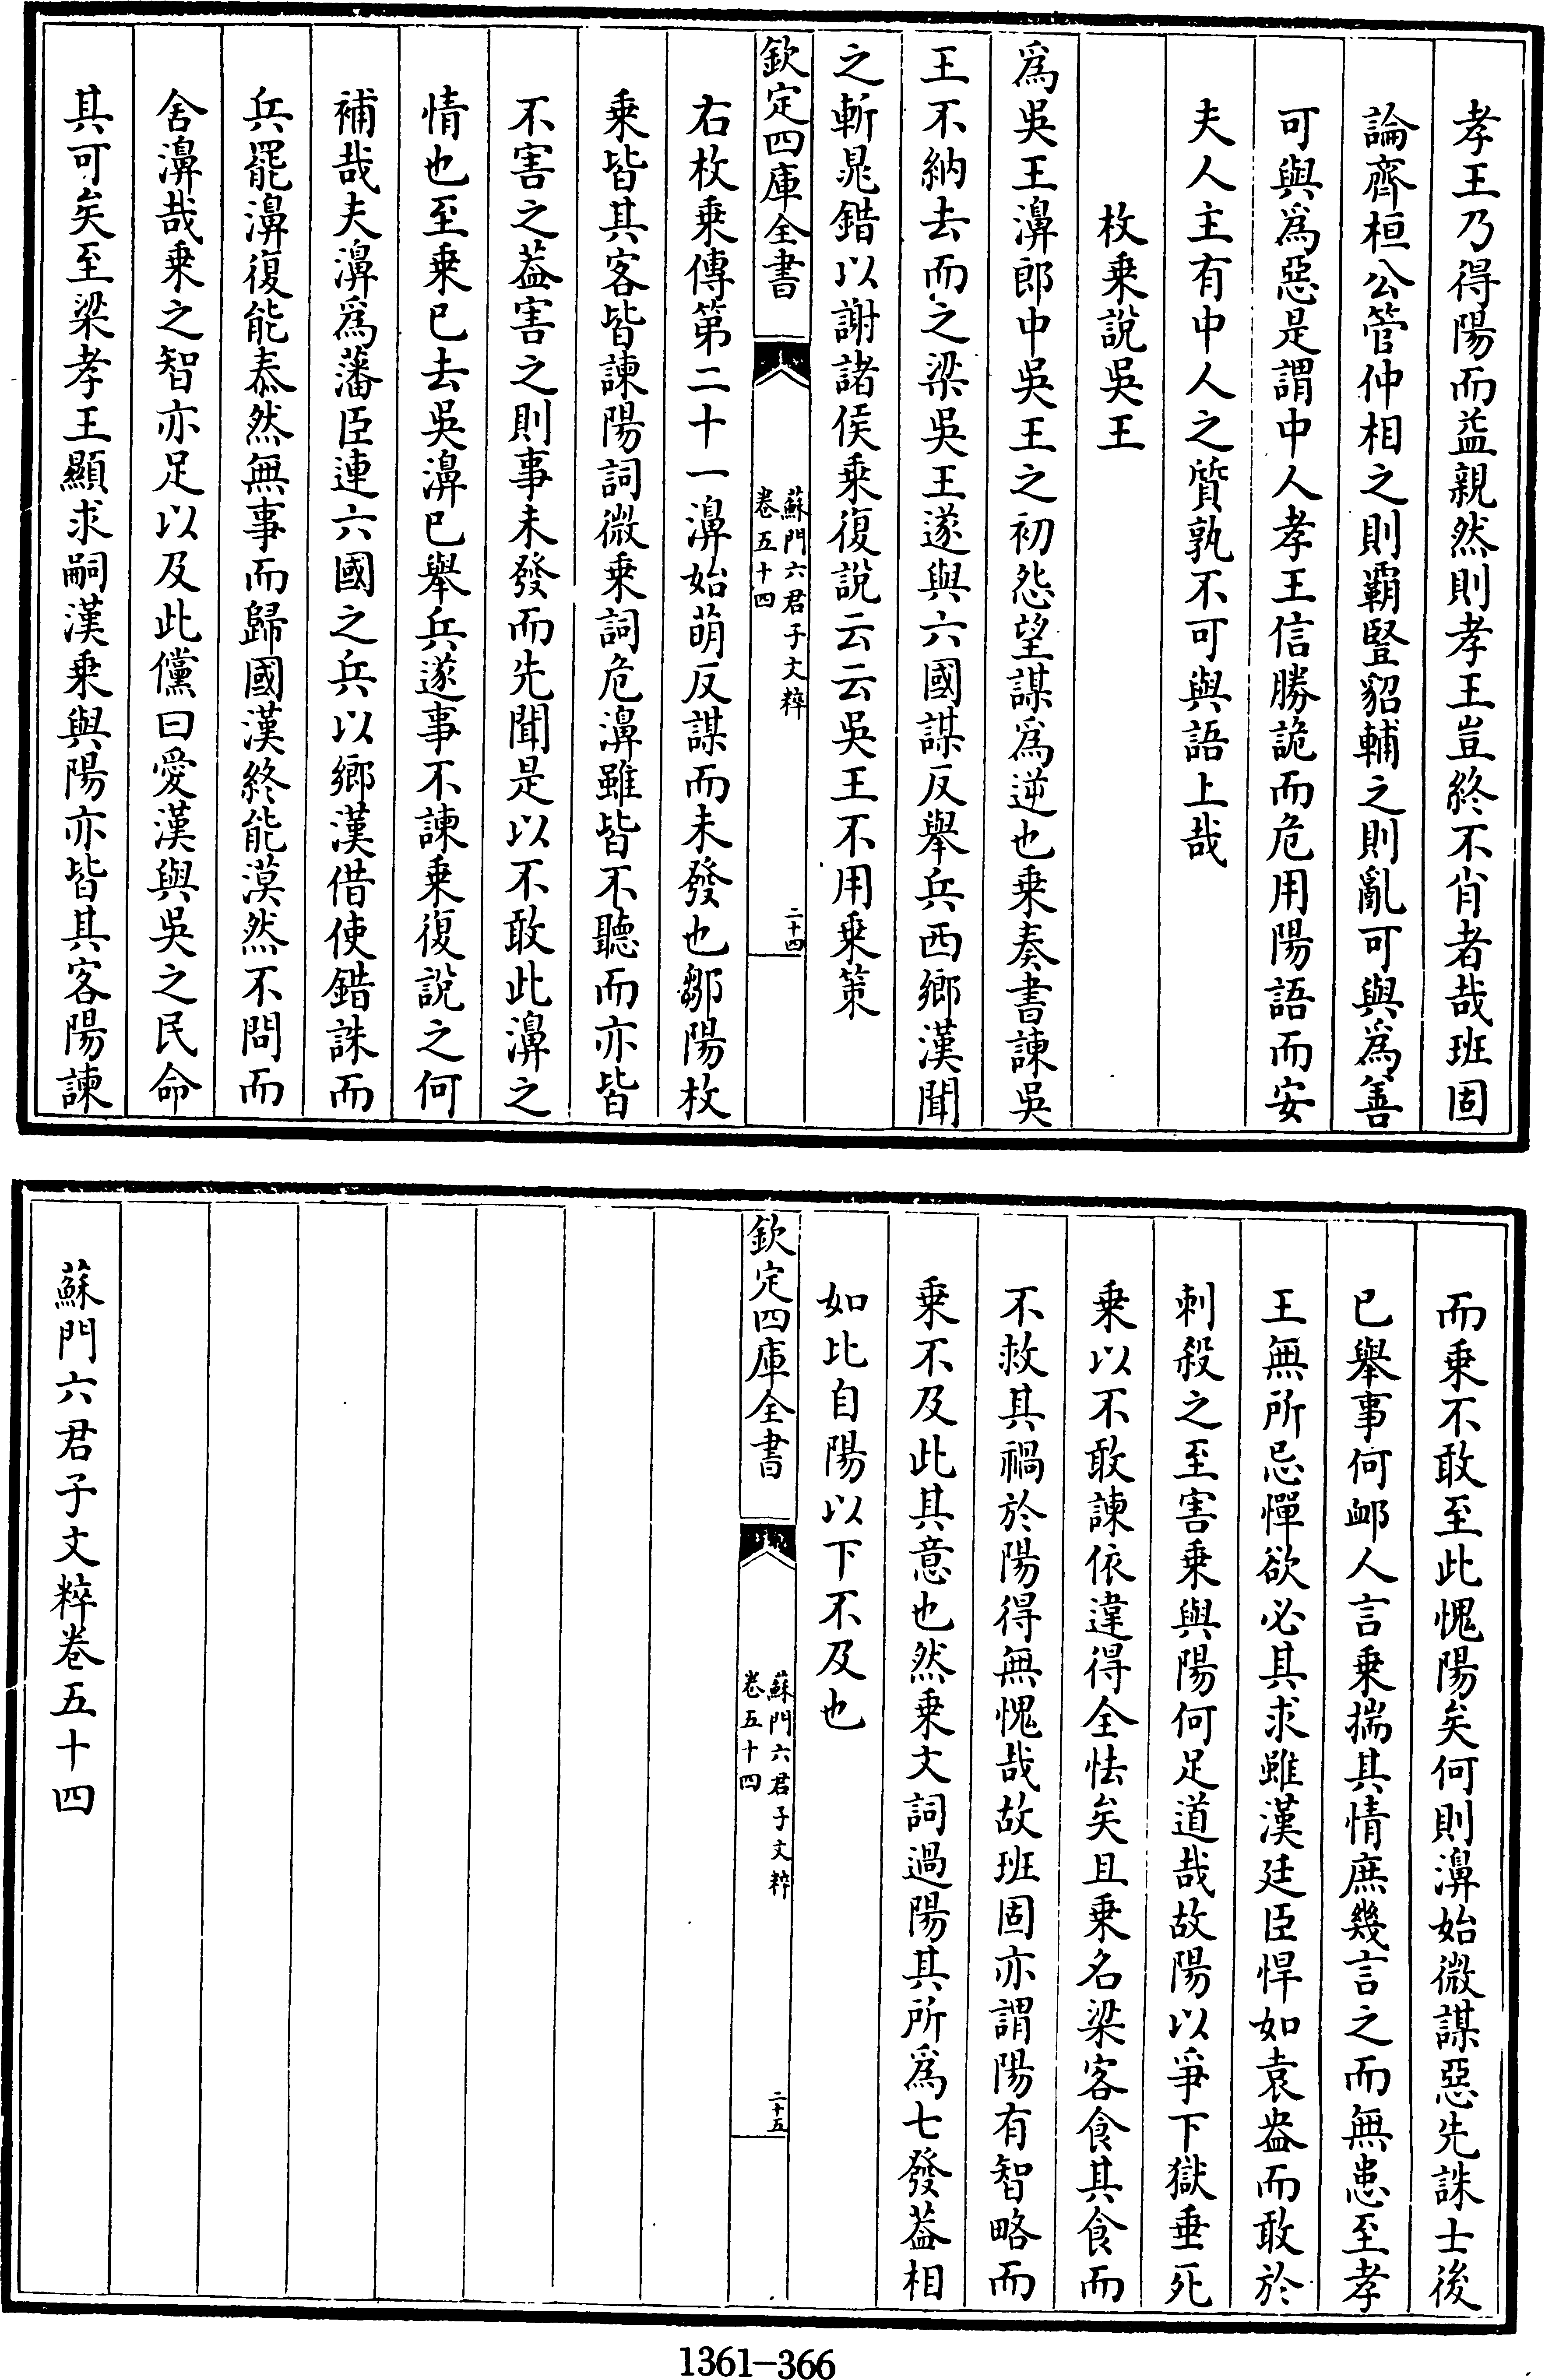 孝王乃得陽而益親然則孝王豈終不肖者哉班固
論齊桓公管仲相之則霸豎貂輔之則亂可與爲善
可與爲惡是謂中人孝王信勝詭而危用陽語而安
夫人主有中人之質孰不可與語上哉
枚乗說吳王
爲吳王濞郎中吳王之初怨望謀爲逆也乗奏書諫吳
王不納去而之梁吳王遂與六國謀反舉兵西鄉漢聞
之斬晁錯以謝諸侯乗復說云云吳王不用乗策
欽定四庫全書
蘇門六君子文粹
卷五十四
二十四
右枚乗傳第二十一濞始萌反謀而未發也鄒陽枚
乗皆其客皆諫陽詞微乗詞危濞雖皆不聽而亦皆
不害之葢害之則事未發而先聞是以不敢此濞之
情也至乗已去吳濞已舉兵遂事不諫乗復說之何
補哉夫濞爲藩臣連六國之兵以鄉漢借使錯誅而
兵罷濞復能泰然無事而歸國漢終能漠然不問而
舍濞哉乗之智亦足以及此儻曰愛漢與吳之民命
其可矣至梁孝王顯求嗣漢乗與陽亦皆其客陽諫
而乗不敢至此愧陽矣何則濞始微謀惡先誅士後
已舉事何䘏人言乗揣其情庶幾言之而無患至孝
王無所忌憚欲必其求雖漢廷臣悍如袁盎而敢於
刺殺之至害乗與陽何足道哉故陽以爭下獄垂死
乗以不敢諫依違得全怯矣且乗名梁客食其食而
不救其禍於陽得無愧哉故班固亦謂陽有智略而
乗不及此其意也然乗文詞過陽其所爲七發葢相
如比自陽以下不及也
欽定四庫全書
蘇門六君子文粹
卷五十四
二十五
蘇門六君子文粹卷五十四
1361-366